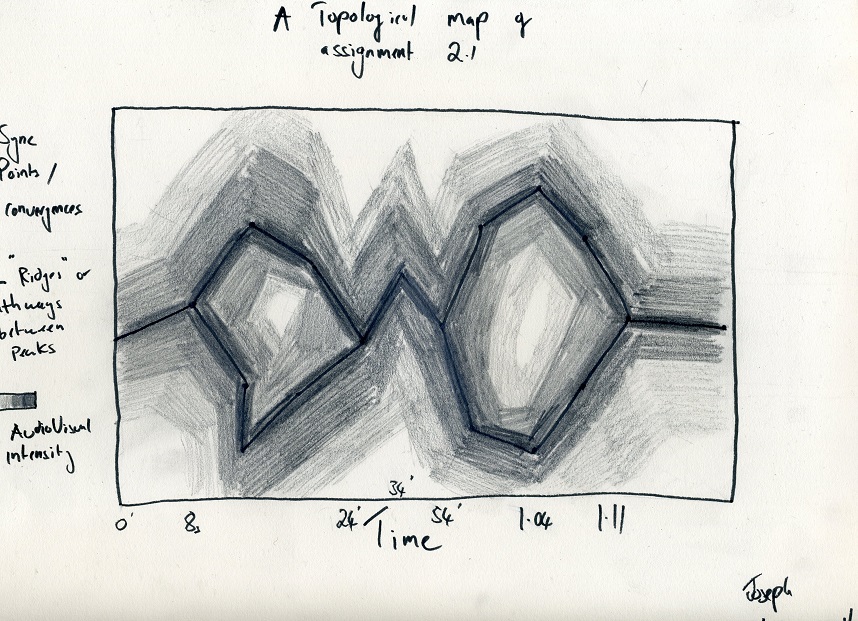 A Topological map of
assignment 2.1
Sync
Points /
convergences
"Ridges" or
thways
between
Peaks
AudioVisual
intensity
0' 8s 24' 34' 54' 1.04 1.11
Time
Joseph